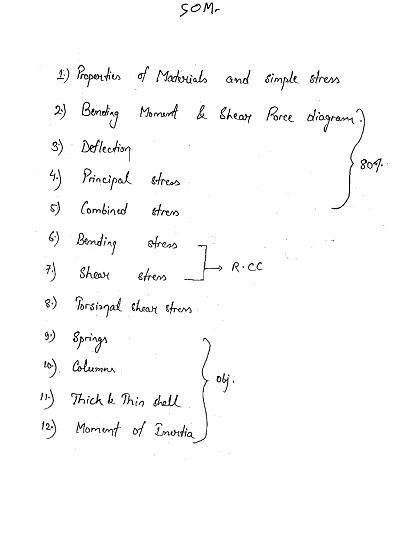 SOM
1.) Properties of Materials and simple stress
2.) Bending Moment & Shear Force diagram.
80%.
3.) Deflection
4.) Principal stress
5.) Combined stress
6.) Bending stress
7.) Shear stress
R.CC
8.) Torsional shear stress
9.) Springs
10.) Columns
obj.
11.) Thick & Thin shell
12.) Moment of Inertia